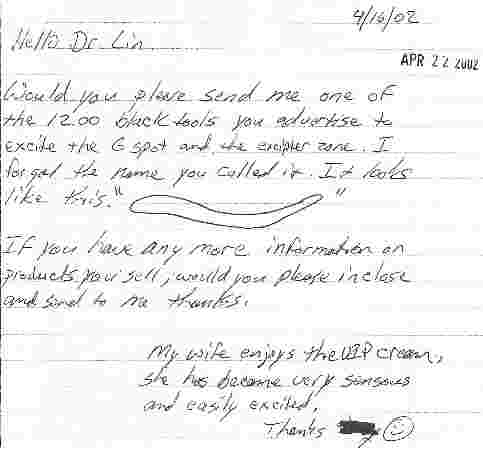 4/16/02
Hello Dr. Lin
APR 22 2002
Would you please send me one of
the 12.00 black tools you advertise to
excite the G spot and the exciter zone. I
forgot the name you called it. It looks
like this. " "
If you have any more information on
products your sell, would you please inclose
and send to me thanks.
My wife enjoys the VIP cream,
she has became very sensous
and easily excited.
Thanks